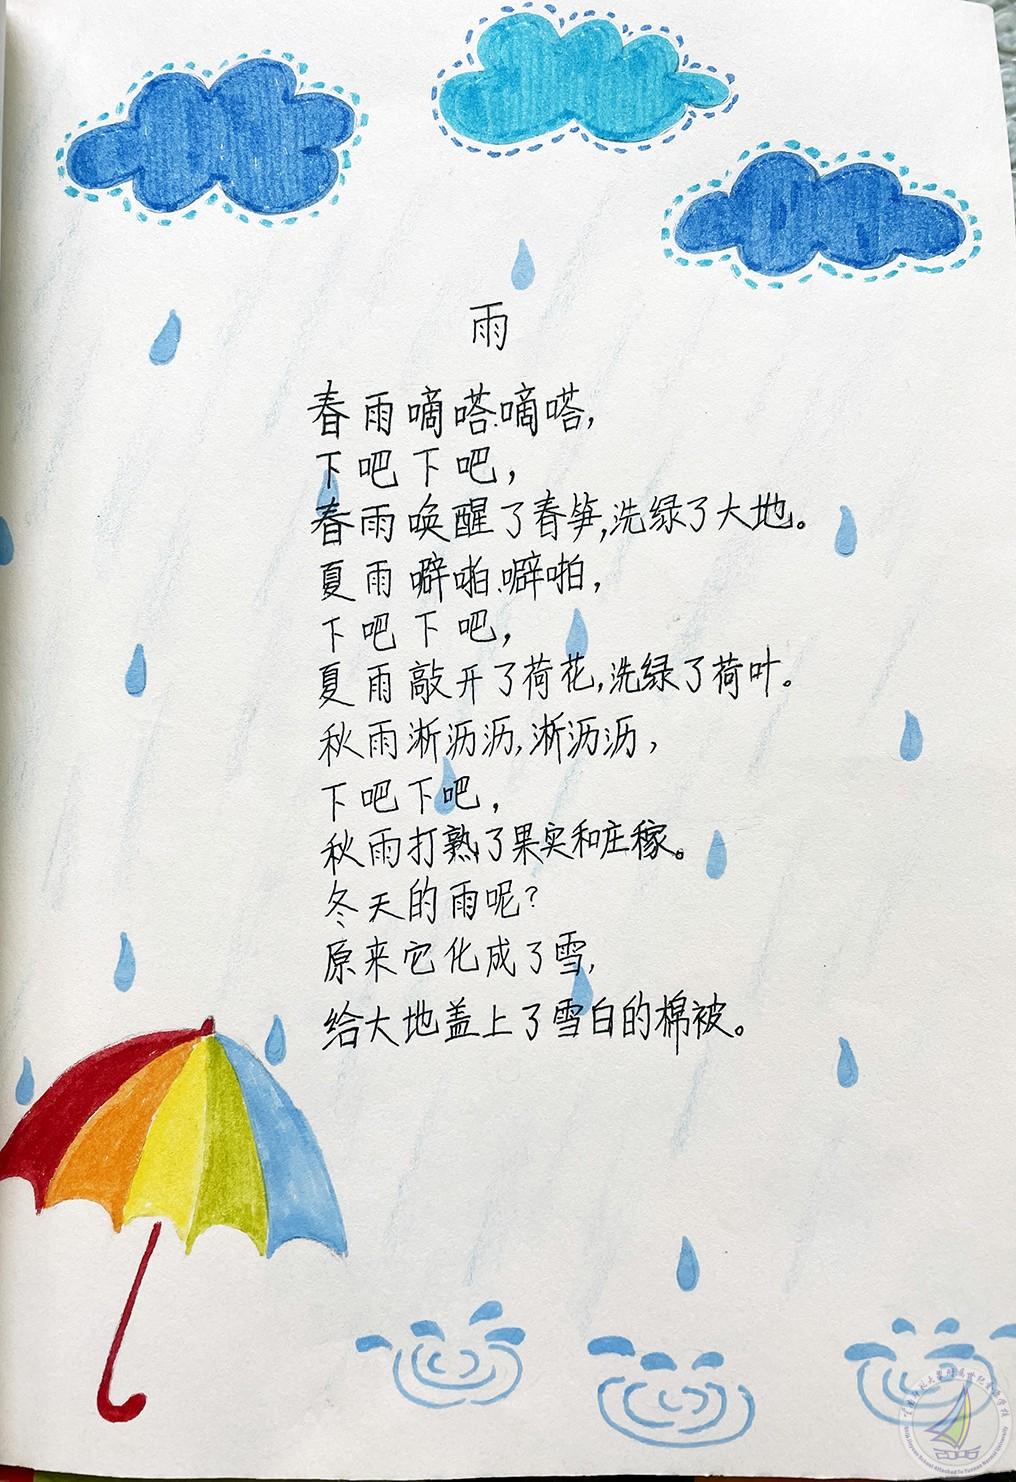 雨
春雨嘀嗒、嘀嗒,
下吧下吧,
春雨唤醒了春笋,洗绿了大地。
夏雨噼啪、噼啪,
下吧下吧,
夏雨敲开了荷花,洗绿了荷叶。
秋雨淅沥沥,淅沥沥,
下吧下吧,
秋雨打熟了果实和庄稼。
冬天的雨呢?
原来它化成了雪,
给大地盖上了雪白的棉被。